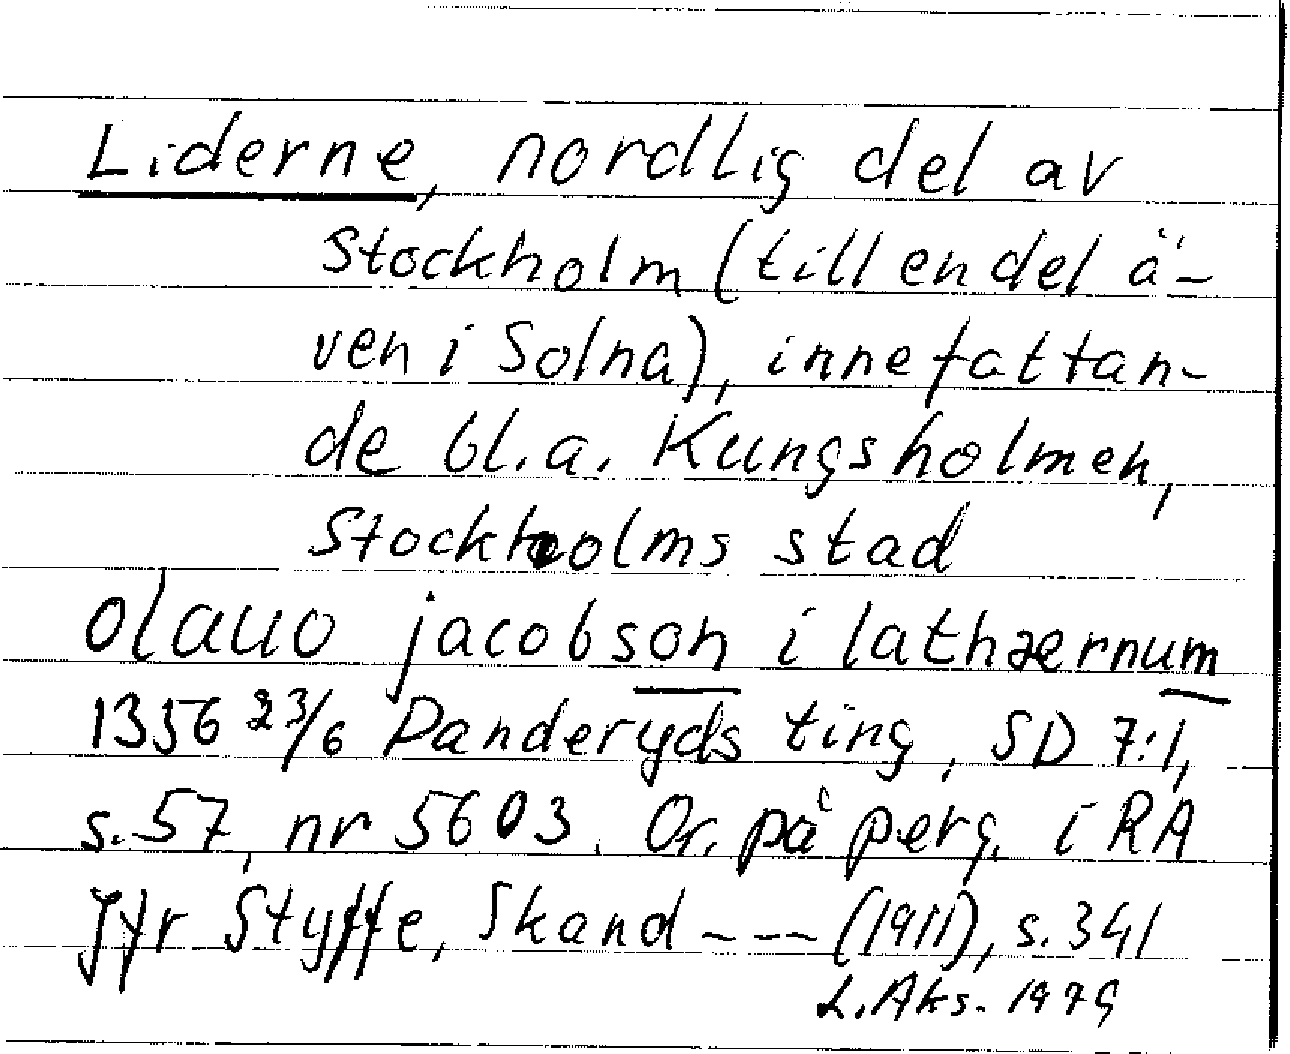 Liderne, nordlig del av
Stockholm (till en del ä-
ven i Solna), innefattan-
de bl.a. Kungsholmen,
Stockholms stad
olauo jacobson i lathærnum
1356 23/6 Danderyds ting, SD 7:1,
s. 57, nr 5603. Or. på perg. i RA
Jfr Styffe, Skand --- (1911), s. 341
L. Aks. 1979